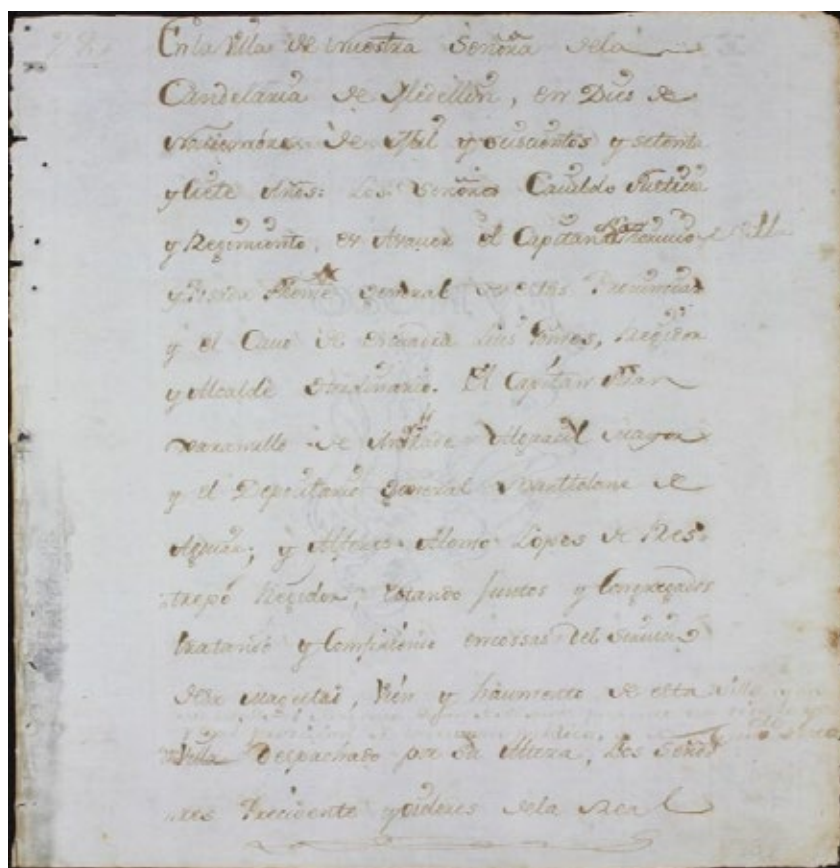 En la Villa de nuestra Señora dela
Candelaria de Medellin, en Dies de
de Mil y seiscientos y setenta
y siete Años: Los Señores Cauildo Justicia
y Regimiento, el Capitan
y Posada General de estas Prouincias
y el Cauo de escuadra Luis Gomes, Regidor
y Alcalde Hordinario. El Capitan Juan
Xaramillo de Andrade Alguacil mayor
y el Depocitario General Barttolome de
Aguiar; y Alferes Alonso Lopes de Res-
trepo Regidor, estando Juntos y Congregados
tratando y Confiriendo en cossas del seruicio
de su Magestad, Vien y haumento de esta Villa
Villa Despachado por su Alteza, los Seño
res Precidente y oidores dela Real